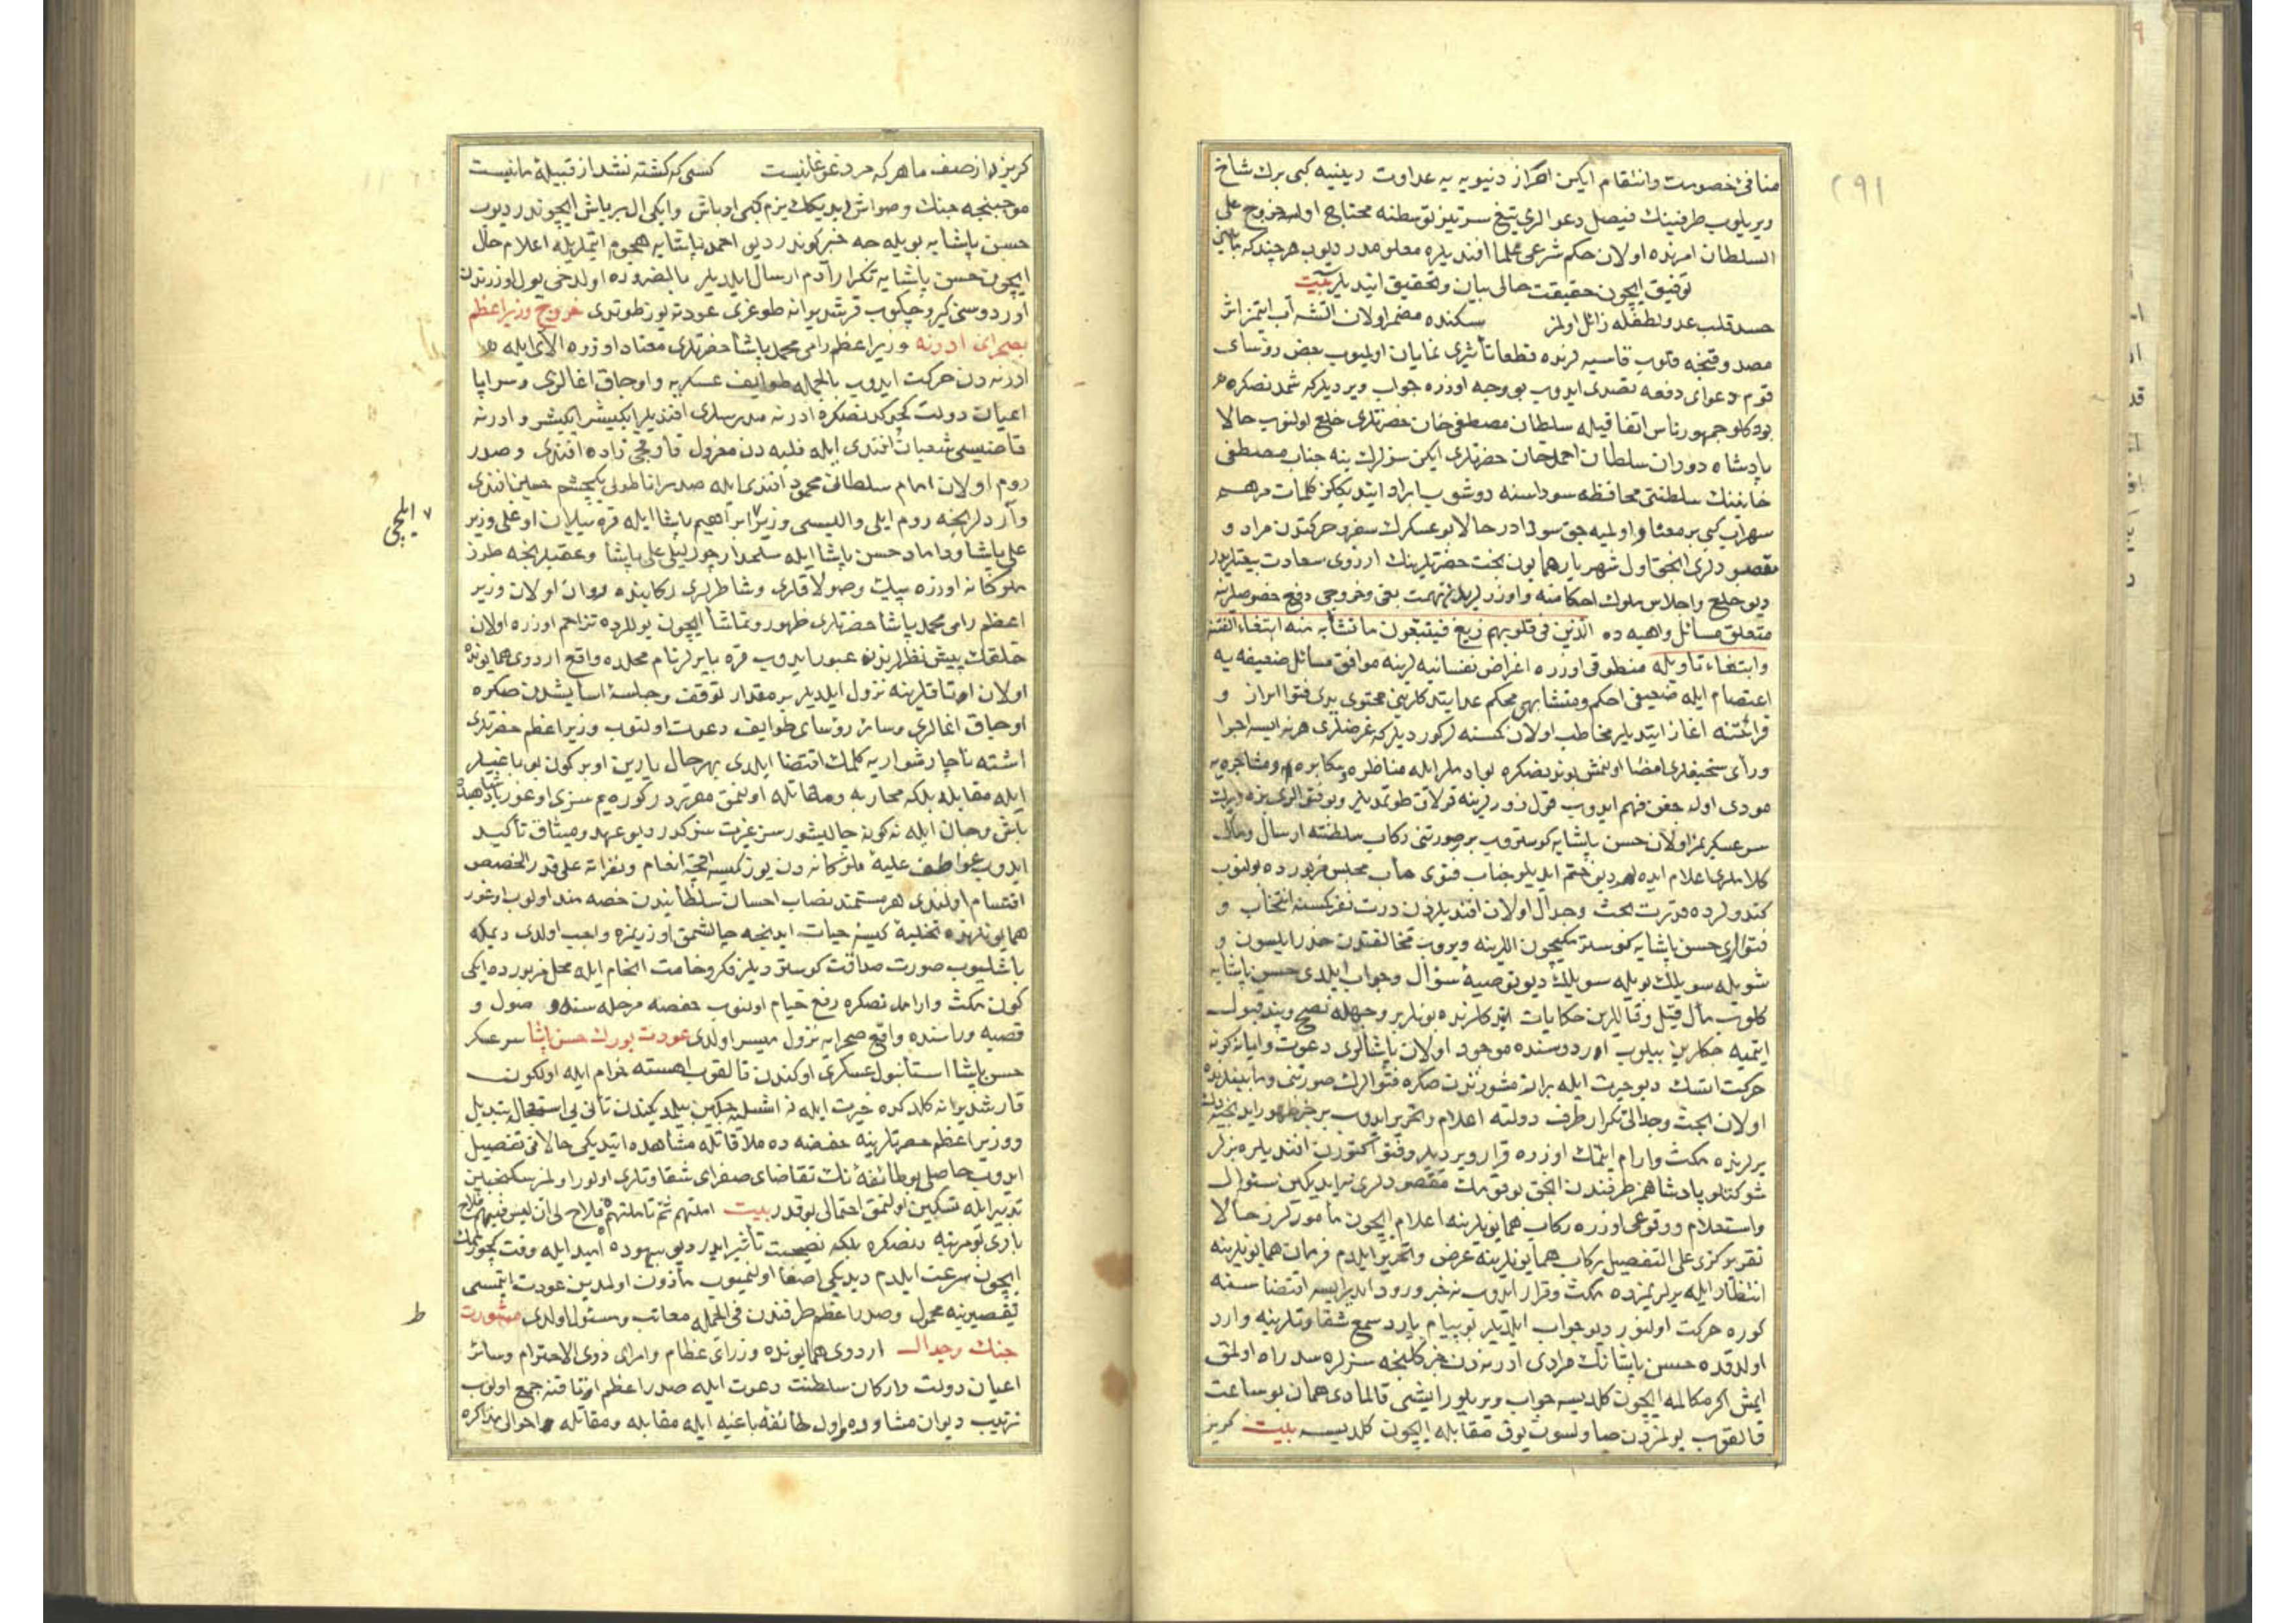 ٢٩١
منافئ خصومت وانتقام ايكن احراز دنيويه يه عداوت دينيه كبى برك شاخ
ويريلوب طرفينك فيصل دعوالرى تيغ سرتيز توسطنه محتاج اولسه خروج على
السلطان امرنده اولان حكم شرعى علما افنديلره معلومدر ديوب هر چند كه
توفيق ايچون حقيقت حالى بيان وتحقيق ايتديلر بيت
حسد قلب عدو لطفله زائل اولمز سكنده مضمر اولان اتشه آب ايتمز اثر
مصدوقنجه قلوب قاسيه لرنده قطعا تأثيرى نمايان اولميوب بعض رؤساى
قوم دعواى دفعه تصدى ايدوب بو وجه اوزره جواب ويرديلر كه شمدنصكره
بودكلو جمهور ناس اتفاقيله سلطان مصطفى خان حضرتلرى خلع اولنوب حالا
پادشاه دوران سلطان احمد خان حضرتلرى ايكن سزلرك ينه جناب مصطفى
خانينك سلطنتى محافظه سوداسنه دوشوب ايراد ايتديككز كلمات مرهم
سراب كبى بر معنا اولميه جق سوزدر حالا بو عسكرك سفر وحركتدن مراد و
مقصودلرى انجق اول شهريار همايون بخت حضرتلرينك ارزوى سعادت بيعتلريدر
ديو خلع واجلاس ملوك احكامنه واوزرلريمزدن تهمت بغى وخروجى دفع خصوصلرينه
متعلق مسائل واهيه ده الذين فى قلوبهم زيغ فيتبعون ما تشابه منه ابتغاء الفتنة
وابتغاء تاويله منطوقى اوزره اغراض نفسانيه لرينه موافق مسائل ضعيفه يه
اعتصام ايله ضعيفى احكم ومتشابهى محكم عد ايتدكلرينى محتوى يدى فتوا ابراز و
قرائتنه اغاز ايتديلر مخاطب اولان كمسنه لر كورديلر كه غرضلرى هر نه ايسه اجرا
ورأى سخيفلرى امضا اولنمش بوندنصكره بو ادملر ايله مناظره مكابره و مشاجره يه
مودى اوله جغن فهم ايدوب قول زورلرينه قولاق طوتمديلر وبو فتوالرى بزه ويرك
سرعسكريمز اولان حسن پاشايه كوستروب بر صورتنى ركاب سلطنته ارسال ومآل
كلاملرى اعلام ايده لم ديو ختم ايديلو جناب فتوى مآب مجلس مزبورده بولنوب
كندولرده قدرت بحث وجدال اولان افنديلردن درت نفر كمسنه انتخاب و
فتوالرى حسن پاشايه كوسترمكيچون اللرينه ويروب مخالفتدن حذر ايلسون و
شويله سويلك بويله سويلك ديو توصيهٔ سؤال وجواب ايلدى حسن پاشايه
كلوب مآل قيل وقاللرين حكايات ايتدكلرنده بونلر بر وجهله نصح وپند قبول
ايتميه جكلرين بيلوب اوردوسنده موجود اولان پاشالرى دعوت وايا نه كونه
حركت ايتسك ديو حيرت ايله برانه مشورتدن صكره فتوالرك صورتنى ومابينلرنده
اولان بحث وجدالى تكرار طرف دولته اعلام وتحرير ايدوب بر خبر ظهور ايدنجيه دك
يرلرنده مكث وارام ايتمك اوزره قرار ويرديلر وفتوا كتورن افنديلره بزلر
شوكتلو پادشاهمز طرفندن انجق بو قوملك مقصودلرى نه ايديكين سئوال
واستعلام ووقوعى اوزره ركاب همايونلرينه اعلام ايچون مأمورلرز حالا
تقريركزى على التفصيل ركاب همايونلرينه عرض وتحرير ايلدم فرمان همايونلرينه
انتظار ايله يرلريمزده مكث وقرار ايدوب نه خبر ورود ايدرايسه اقتضاسنه
كوره حركت اولنور ديو جواب ايلديلر بو پيام بارد سمع شقاوتلرينه وارد
اولدقده حسن پاشانك مرادى ادرنه دن خبر كلينجه سزلره سد راه اولمق
ايمش اكر مكالمه ايچون كلديسه جواب ويريلور ايشى قالمادى همان بو ساعت
قالقوب يولمزدن صاولسون يوق مقابله ايچون كلديسه بيت كريز
كريزد از صف ما هر كه مرد غوغا نيست كسى كه كشته نشد از قبيلهٔ ما نيست
موجبنجه جنك وصواش ايديككز بزم كبى اوباش وايكى ال بر باش ايچوندر ديوب
حسن پاشايه بويله جه خبر كوندرديو احمد پاشايه هجوم ايتملريله اعلام حال
ايچون حسن پاشايه تكرار آدم ارسال ايلديلر بالضروره اولدخى يول اوزرندن
اوردوسنى كيرو چكوب قرشديرانه طوغرى عودته يوز طوتدى خروج وزير اعظم
بصحراى ادرنه وزير اعظم رامى محمد پاشا حضرتلرى معتاد اوزره الاى ايله
ادرنه دن حركت ايدوب بالجمله طوايف عسكريه واوجاق اغالرى وسراپا
اعيان دولت كچوكدنصكره ادرنه مدرسلرى افنديلر ايكيشر ايكيشر و ادرنه
قاضيسى شعبان افندى ايله فلبه دن معزول قاوقجى زاده افندى وصدر
روم اولان امام سلطانى محمود افندى ايله صدر اناطولى يكچشم حسين افندى
وآردلرنجه روم ايلى واليسى وزير ابراهيم پاشا ايله قره ييلان اوغلى وزير
٧ ايلچى
على پاشا وداماد حسن پاشا ايله سلحدار چورليلى على پاشا وعقبلرنجه طرز
ملوكانه اوزره پيك وصولاقلرى وشاطرلرى ركابنده روان اولان وزير
اعظم رامى محمد پاشا حضرتلرى ظهور وتماشا ايچون يوللرده تزاحم اوزره اولان
خلقك پيش نظرلرندن عبور ايدوب قره بايرلر نام محلده واقع اردوى همايونده
اولان اوتاقلرينه نزول ايلديلر بر مقدار توقف وجلسهٔ اسايشدن صكره
اوجاق اغالرى وسائر رؤساى طوايف دعوت اولنوب وزير اعظم حضرتلرى
اشته ناچار شوار يه كلمك اقتضا ايلدى بهرحال يارين اوبر كون بو باغيلر
ايله مقابله بلكه محاربه ومقاتله اولنمق مقرردر كوره يم سزى اوغور پادشاهيده
باش وجان ايله نه كونه چاليشورسز غيرت سزكدر ديو عهد وميثاق تأكيد
ايدوب عواطف عليهٔ ملوكانه دن يوز كيسه اقچه انعام ونفراته على قدر التخصيص
اقتسام اولندى هر مستمند نصاب احسان سلطانيدن حصه مند اولوب اوغور
همايونلرنده تخليهٔ كيسهٔ حيات ايدنجه چالشمق اوزريمزه واجب اولدى ديمكله
باشليوب صورت صداقت كوسترديلر فكر وخامت انجام ايله محل مزبورده ايكى
كون مكث وارامدنصكره رفع خيام اولنوب حفصه مرحله سنده صول و
قصبه وراسنده واقع صحرايه نزول ميسر اولدى عودت بورك حسن پاشا سرعسكر
حسن پاشا استانبول عسكرى اوكندن قالقوب اهسته خرام ايله اولكون
قارشديرانه كلدكده حيرت ايله نه ايشليه جكين بيلمديكندن تأنى يى استعجاله تبديل
ووزير اعظم حضرتلرينه حفصه ده ملاقاتله مشاهده ايتديكى حالاتى تفصيل
ايدوب حاصلى بو طائفه نك تقاضاى صفراى شقاوتلرى اولور اولمز سكنجبين
تدبير ايله تسكين اولنمق احتمالى يوقدر بيت املتهم ثم تاملتهم فلاح لى ان ليس فيهم فلاح
بارى بو مرتبه دنصكره بلكه نصيحت تأثير ايدر ديو بيهوده اميد ايله وقت كچورمامك
ايچون سرعت ايلدم ديديكى اصغا اولنميوب مأذون اولمدين عودت ايتمسى
تقصيرينه محمول وصدر اعظم طرفندن فى الجمله معاتب ومسئول اولدى مشورت
ط
جنك وجدال اردوى همايونده وزراى عظام وامراى ذوى الاحترام وسائر
اعيان دولت واركان سلطنت دعوت ايله صدر اعظم اوتاقنه جمع اولوب
ترتيب ديوان مشاوره واول طائفه باغيه ايله مقابله ومقاتله احوالى مذاكره